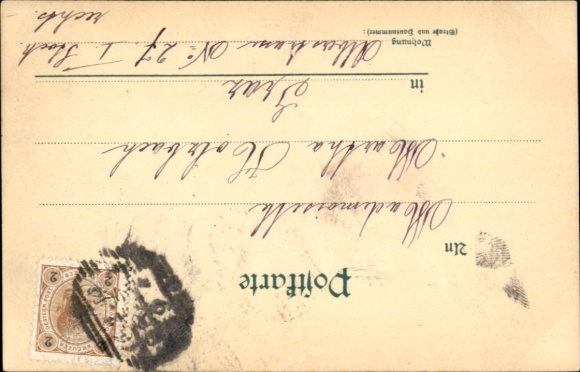 Postkarte
An
Mademoiselle
Martha Holzbach
in Graz
Wohnung
(Straße und Hausnummer):
Alberstrasse No 27. I. Stock
rechts.
2 2